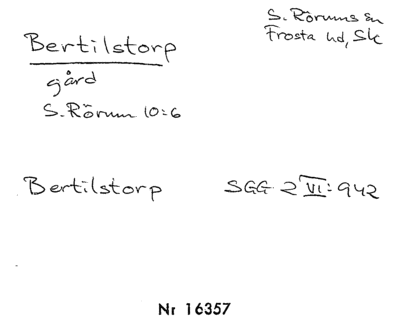 Bertilstorp
S. Rörums sn
Frosta hd, Sk
gård
S. Rörum 10:6
Bertilstorp SGG 2 VI: 942
Nr 16357